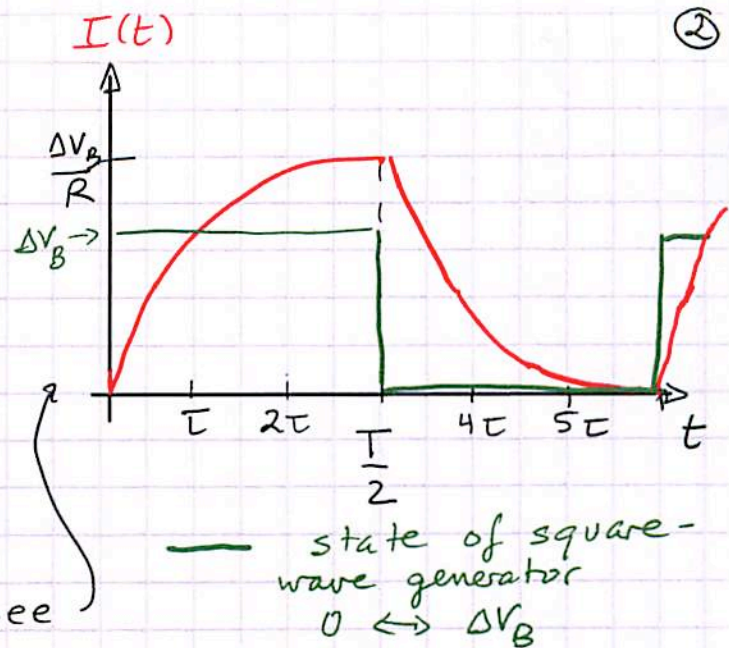 ②
I(t)
ΔV_B
R
ΔV_B →
τ 2τ T/2 4τ 5τ t
— state of square-
wave generator
ee
0 ↔ ΔV_B